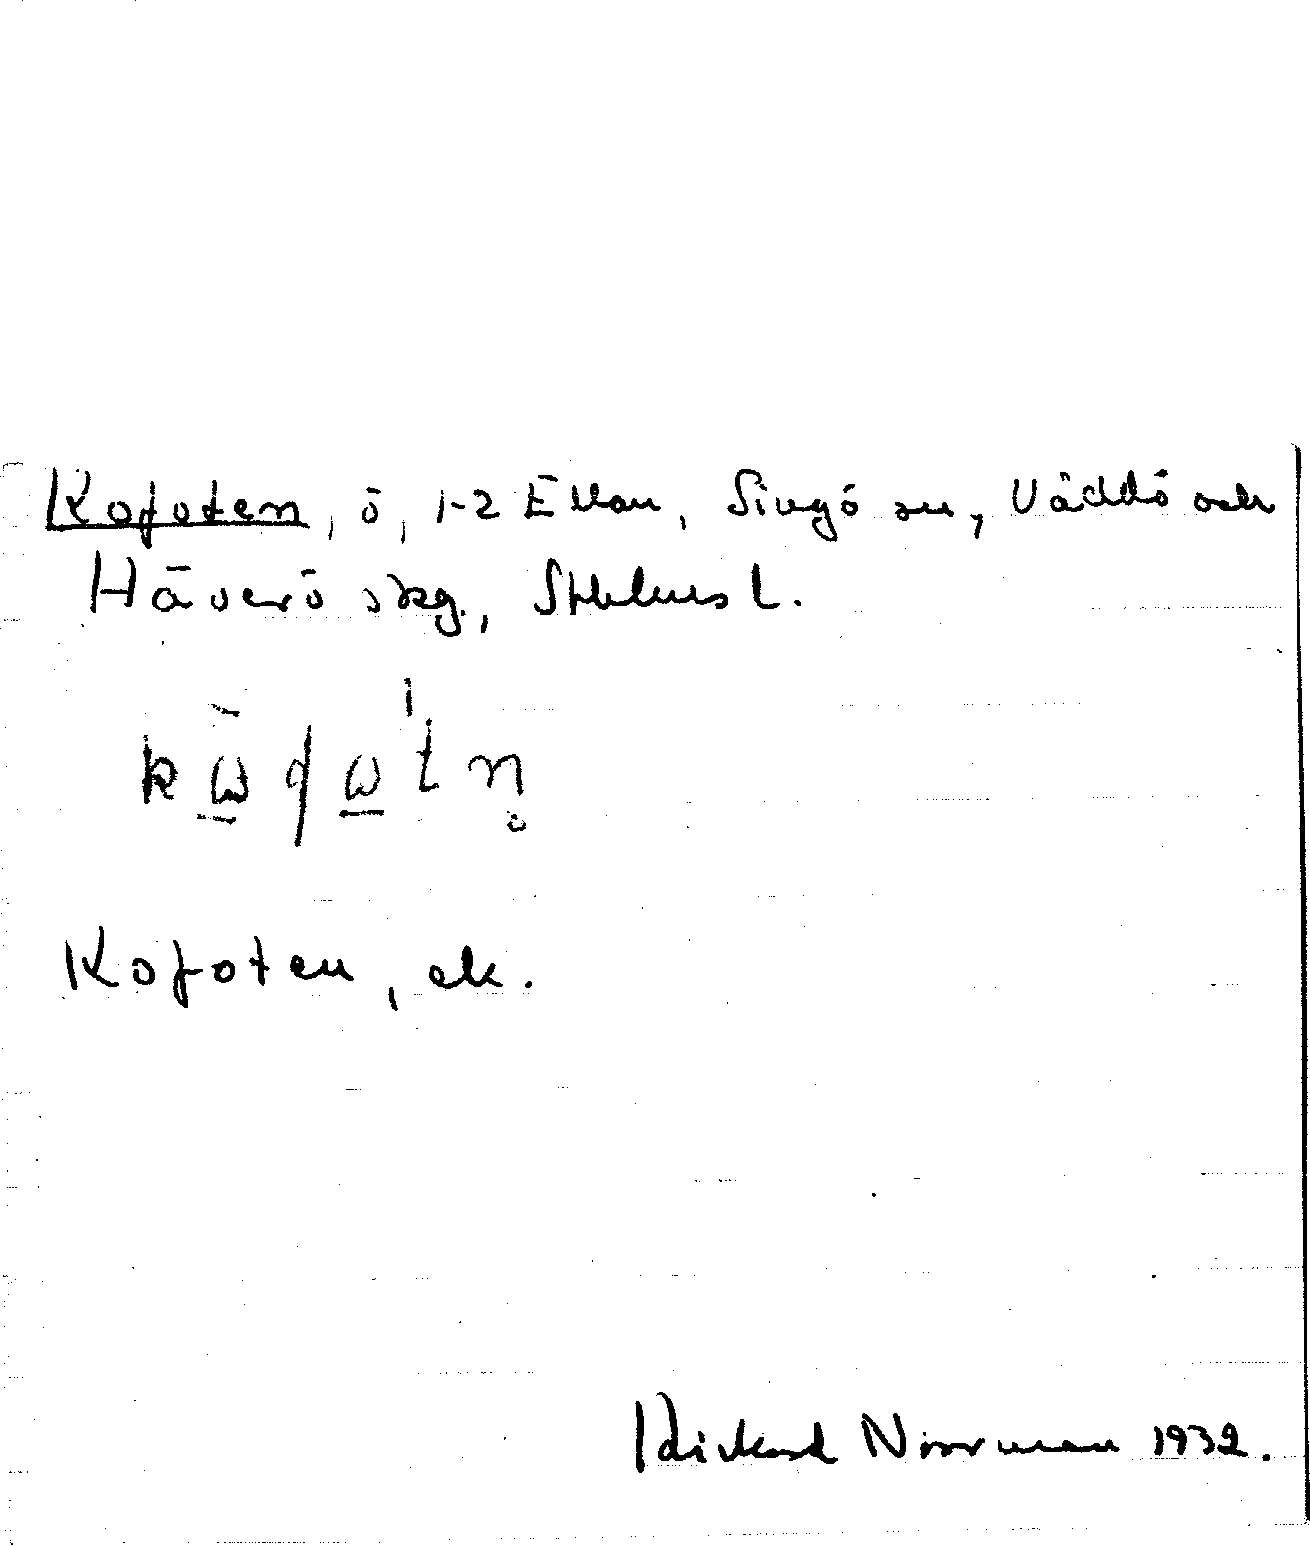 Kofoten, ö, 1-2 Ellan, Singö sn, Väddö och
Häverö skg., Sthlms l.
Kofoten, ek.
Rickard Norrman 1932.